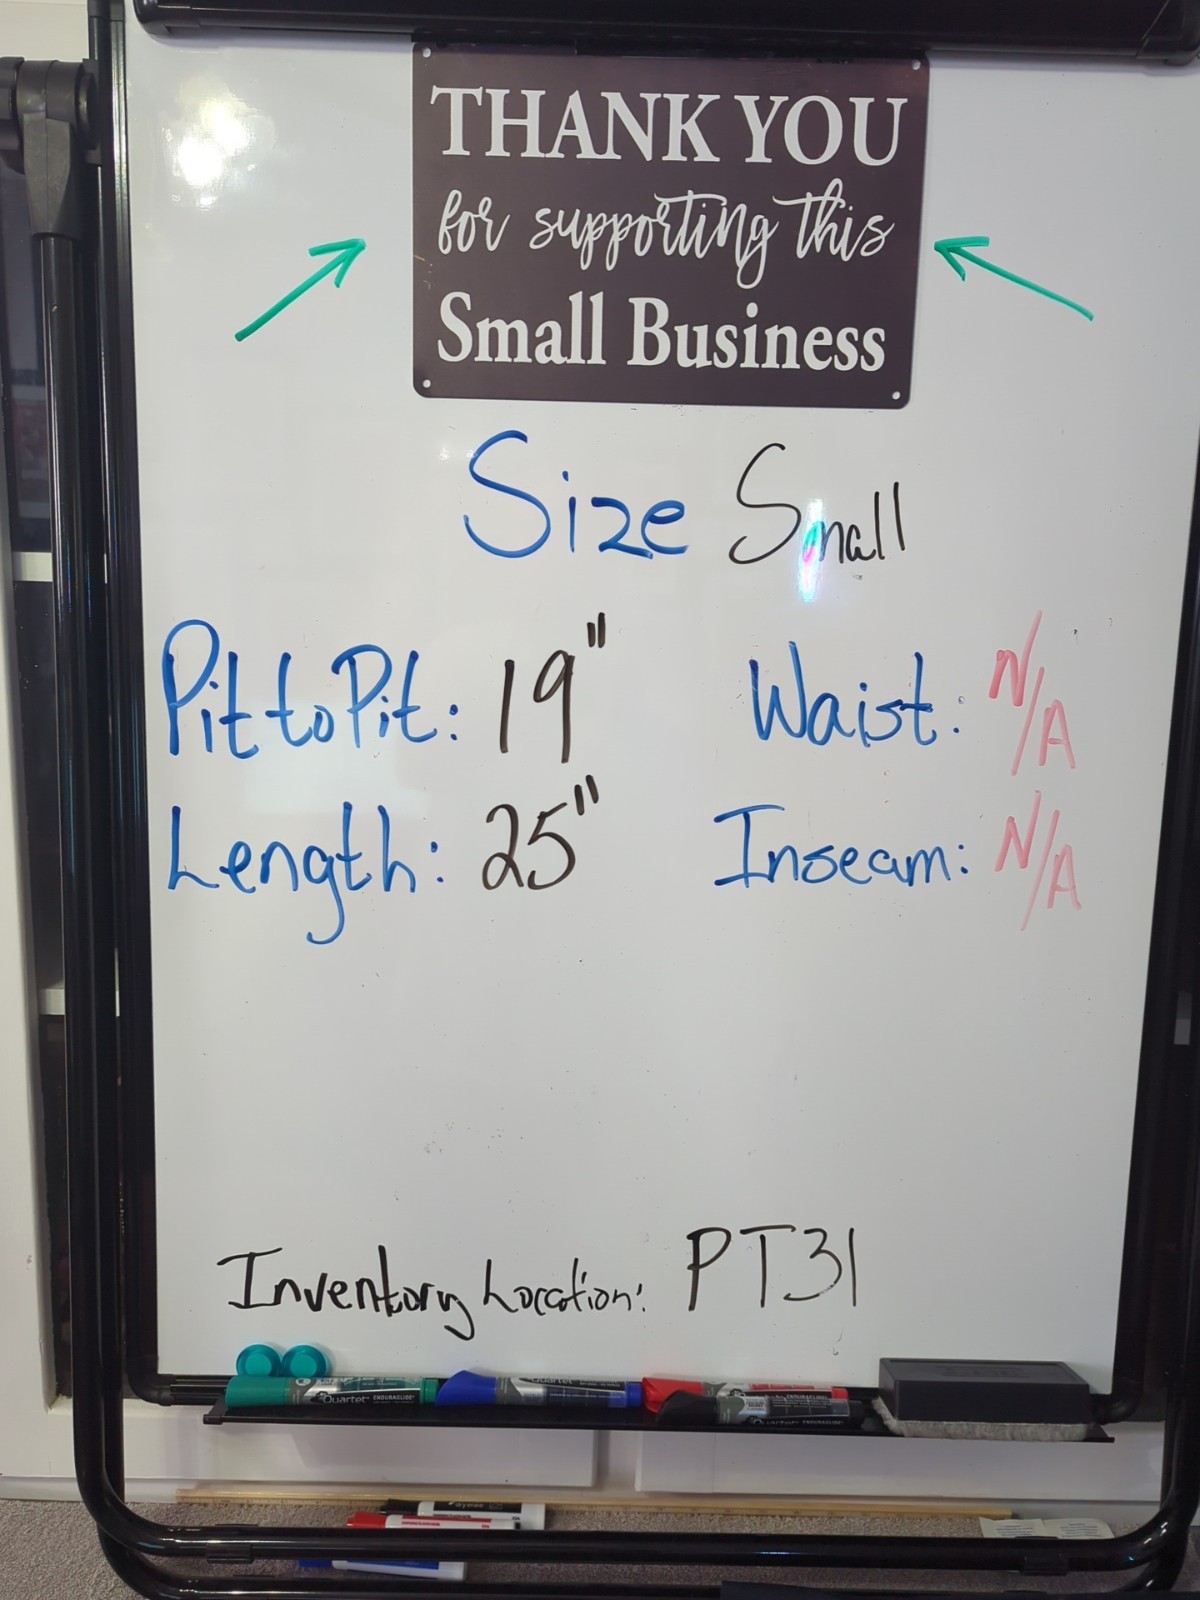 THANK YOU
for supporting this
Small Business
Size Small
Pit to Pit: 19" Waist: N/A
Length: 25" Inseam: N/A
Inventory Location: PT31
Quartet ENDURAGLIDE
Quartet
Quartet ENDURAGLIDE